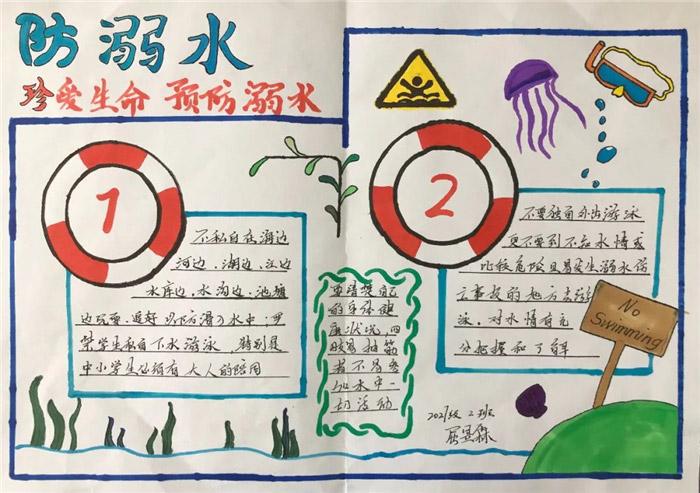 防溺水
珍爱生命 预防溺水
1
不私自在海边
河边、湖边、江边
水库边、水沟边、池塘
边玩耍、追赶以防滑入水中;严
禁学生私自下水游泳,特别是
中小学生必须有大人的陪同
要清楚自己
的身体健
康状况,四
肢易抽筋
者不易参
加水中一
切活动
2
不要独自外出游泳
更不要到不知水情或
比较危险且易发生溺水伤
亡事故的地方去游
泳。对水情有充
分把握和了解
No
Swimming
2021级 2班